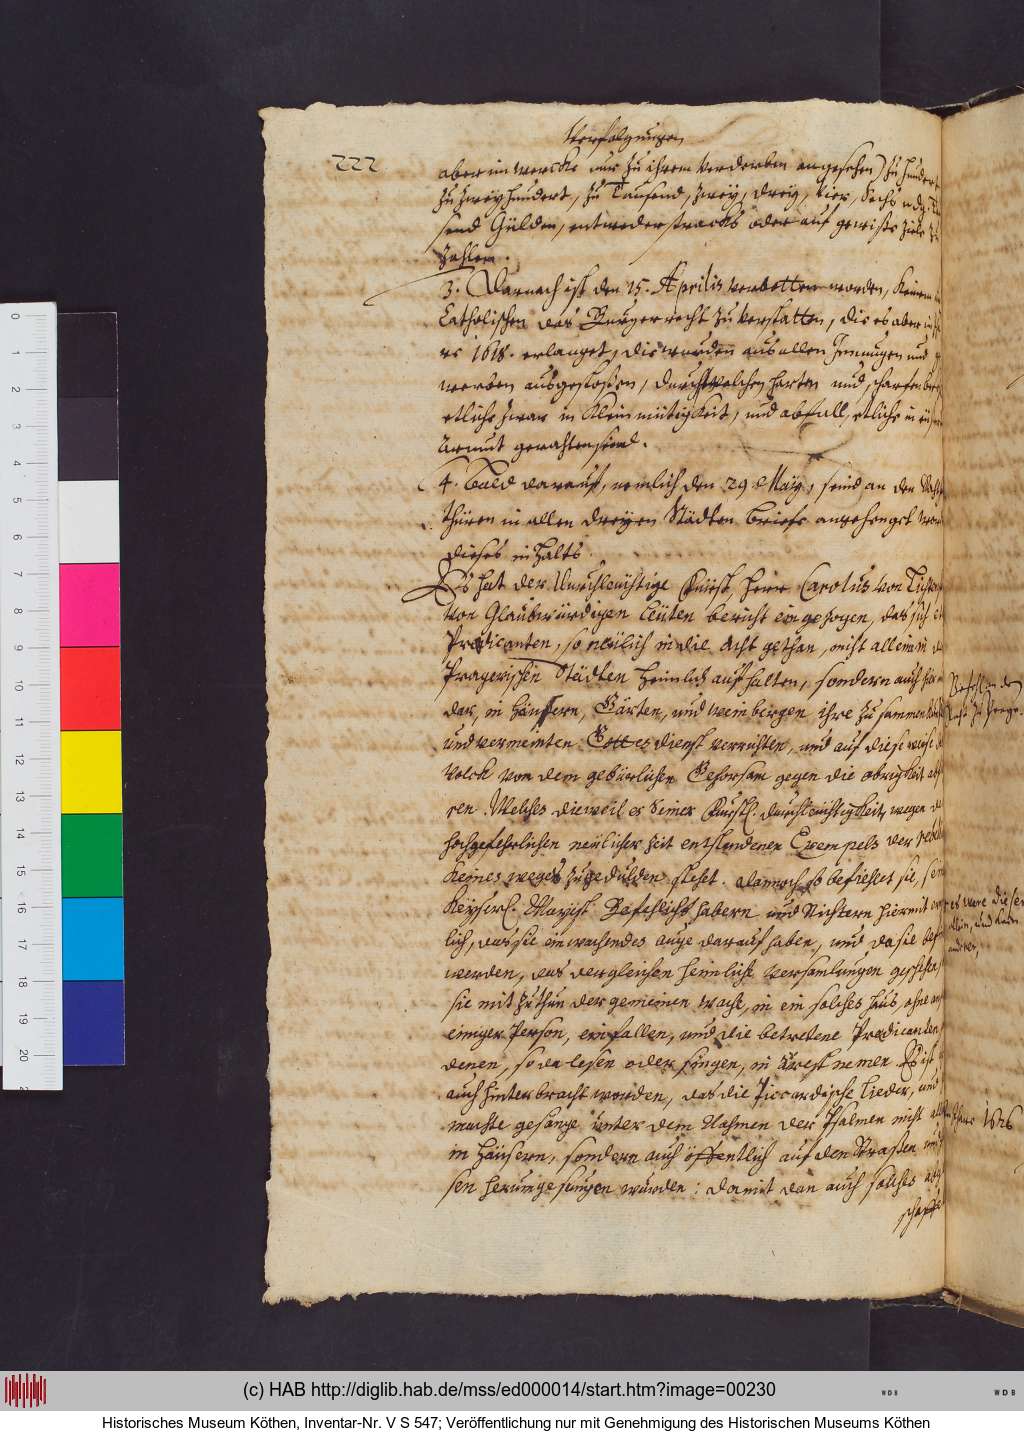 Verfolgungen
222
aber im wercke nur zu ihrem verderben angesehen) zu hundert
zu zweyhundert, zu Tausend, zwey, drey, vier, sechs
send Gülden, entweder stracks oder auf gewisse ziele zu
zahlen.
3. Darnach ist den 15. Aprilis verbotten worden, keinem
Catholischen das Burgerrecht zu verstatten, die es aber
1618. erlanget, die wurden aus allen Innungen und
werben ausgestoßen, durch welchen harten und scharfen
etliche zwar in Kleinmütigkeit, und abfall, etliche in
armut gerahten sind.
4. Bald darauf, nemlich den 29 Maÿ, seind an der
thüren in allen dreyen Städten brieffe angehengt
dieses inhalts
Es hat der Durchleuchtige Fürst, Herr Carolus von
von Glaubwürdigen leüten bericht eingezogen, das sich
Prædicanten, so neülich in die Acht gethan, nicht allein in
Pragerischen Städten heimlich aufhalten, sondern auch
dar, in häusern, Gärten, und weinbergen ihre zusammen
und vermeinten Gottesdienst verrichten, und auf diese weise
volck von dem gebürlichen Gehorsam gegen die obrigkeit
ren. Welches dieweil es Seiner Fürstl. durchleuchtigkeit, wegen
hochgefehrlichen neülicher zeit entstandener Exempels der
keines weges zugedulden stehet. Dannoch so befiehlet sie,
Keyserl. Mayest. Befehlichshabern und Richtern hiermit
lich, das sie ein wachendes auge darauf haben, und da sie
werden, das dergleichen heimliche versamlungen
sie mit zuthun der gemeinen wacht, in ein solches haus, ohne
einiger Person, einfallen, und die betretene Prædicanten
denen, so da lesen oder singen, in Arest nemen. Es ist
auch hinterbracht worden, das die Piccardische Lieder, und
machte gesänge unter dem Nahmen der Psalmen nicht
in Häusern, sondern auch öffentlich auf den Straßen und
sen herumgesungen wurden: damit dan auch solches
schaffe
1626
(c) HAB http://diglib.hab.de/mss/ed000014/start.htm?image=00230
Historisches Museum Köthen, Inventar-Nr. V S 547; Veröffentlichung nur mit Genehmigung des Historischen Museums Köthen